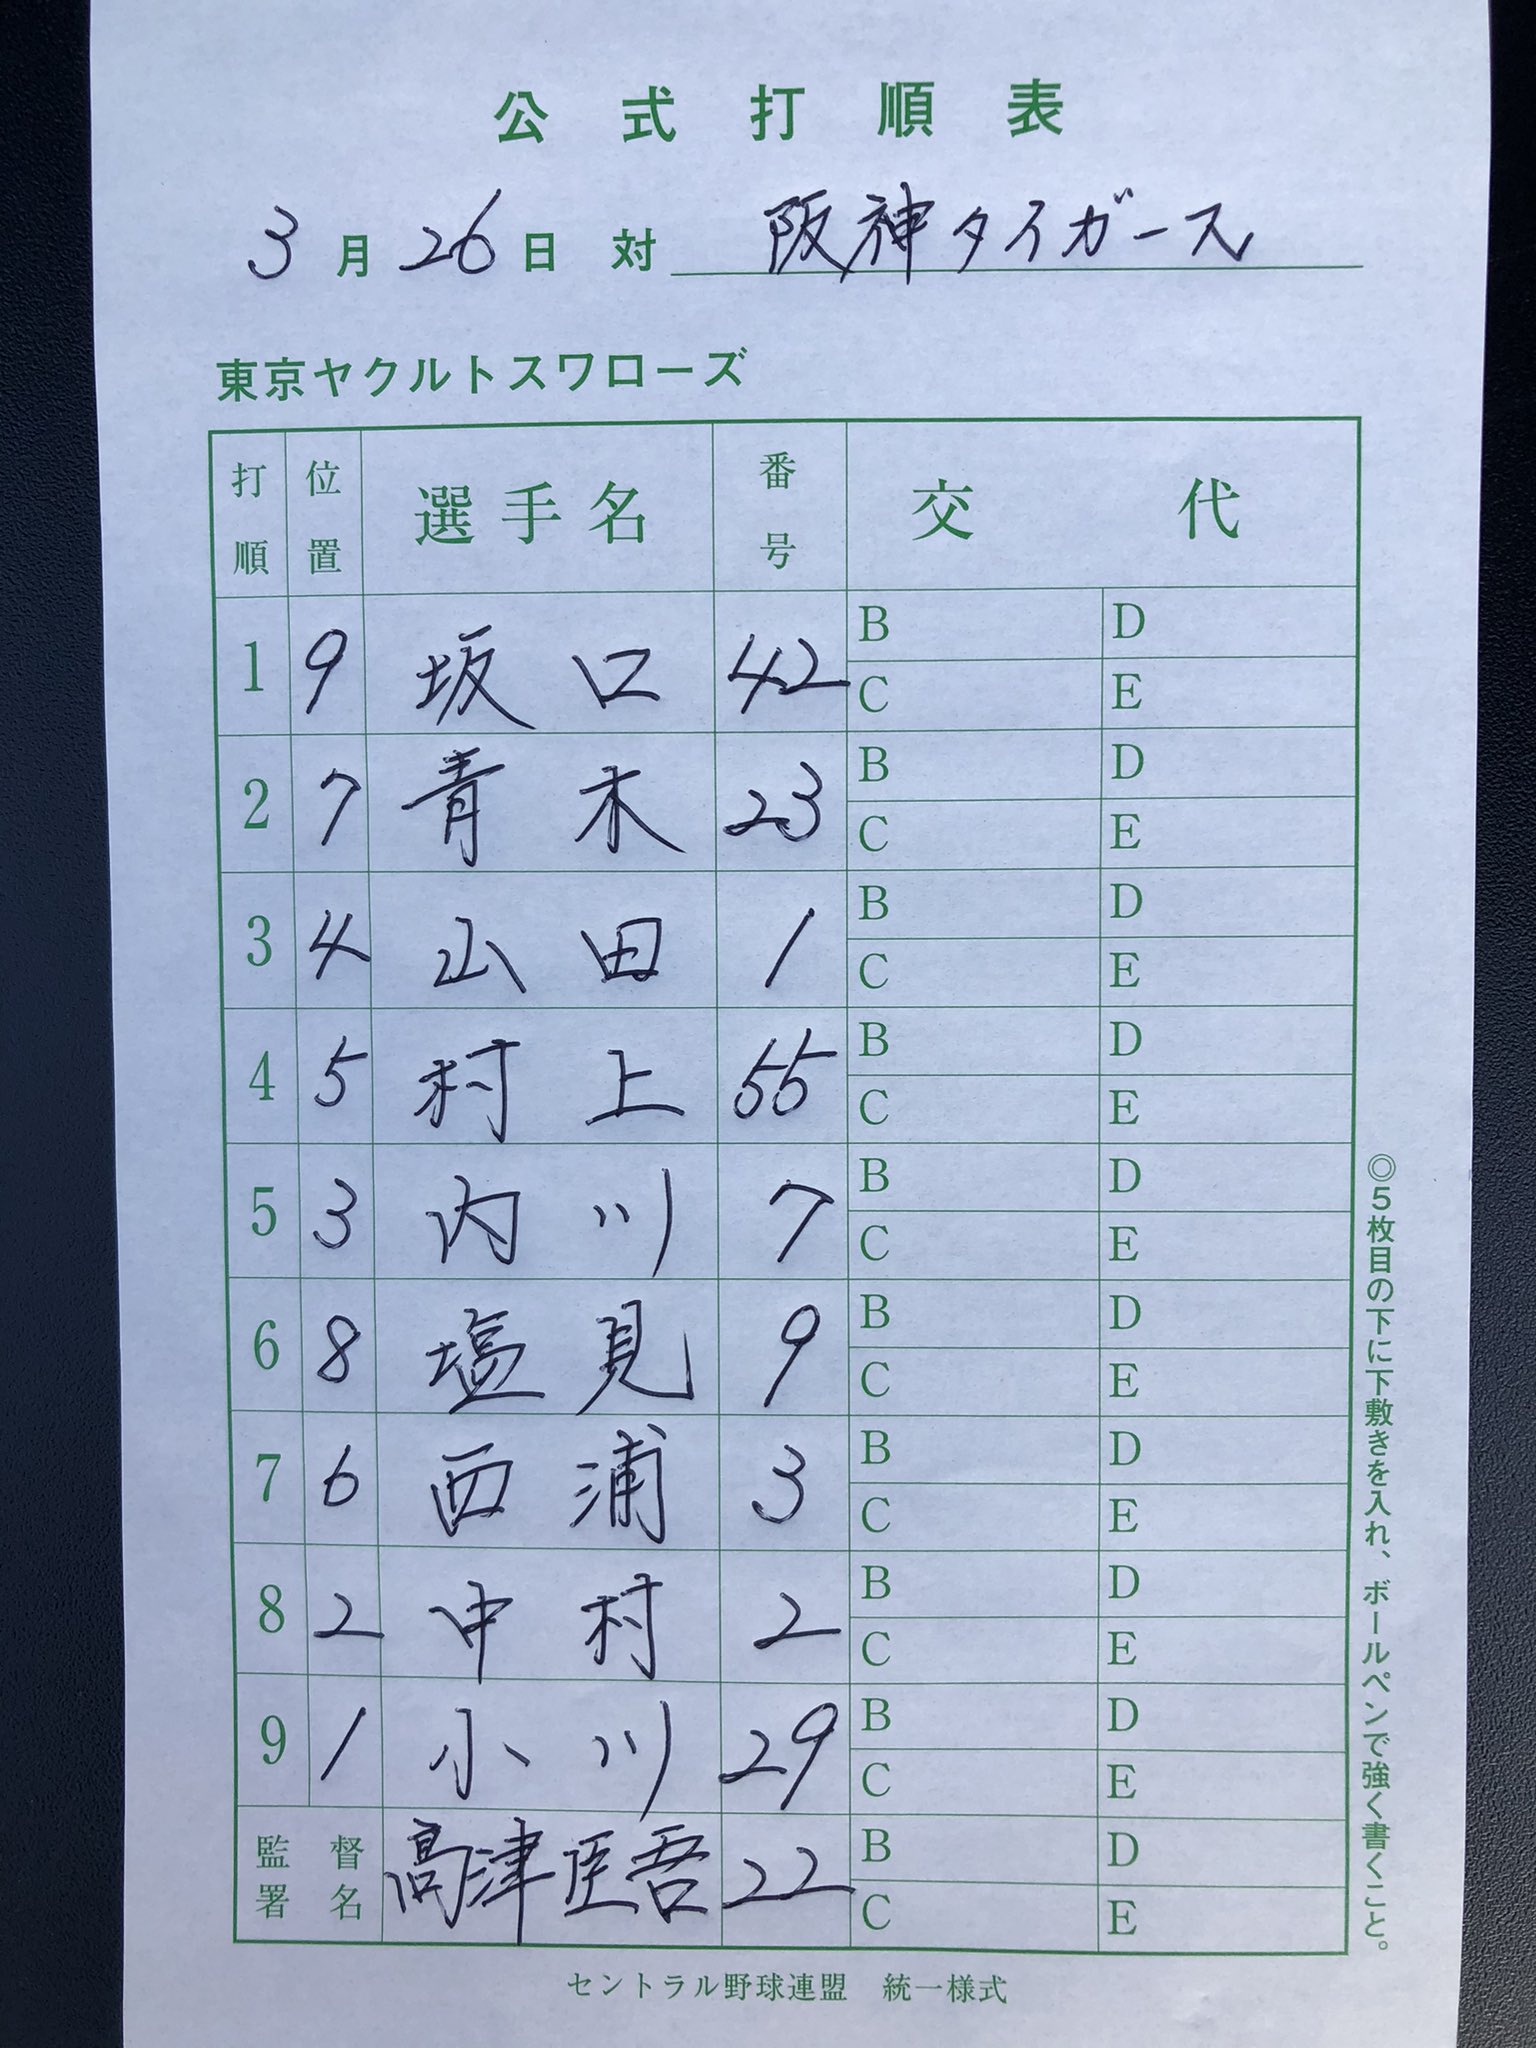 公式打順表
3月26日 対 阪神タイガース
東京ヤクルトスワローズ
打順 位置 選手名 番号 交代
1 9 坂口 42 B D
C E
2 7 青木 23 B D
C E
3 4 山田 1 B D
C E
4 5 村上 55 B D
C E
5 3 内川 7 B D
C E
6 8 塩見 9 B D
C E
7 6 西浦 3 B D
C E
8 2 中村 2 B D
C E
9 1 小川 29 B D
C E
監督署名 高津臣吾 22 B D
C E
◎5枚目の下に下敷きを入れ、ボールペンで強く書くこと。
セントラル野球連盟 統一様式